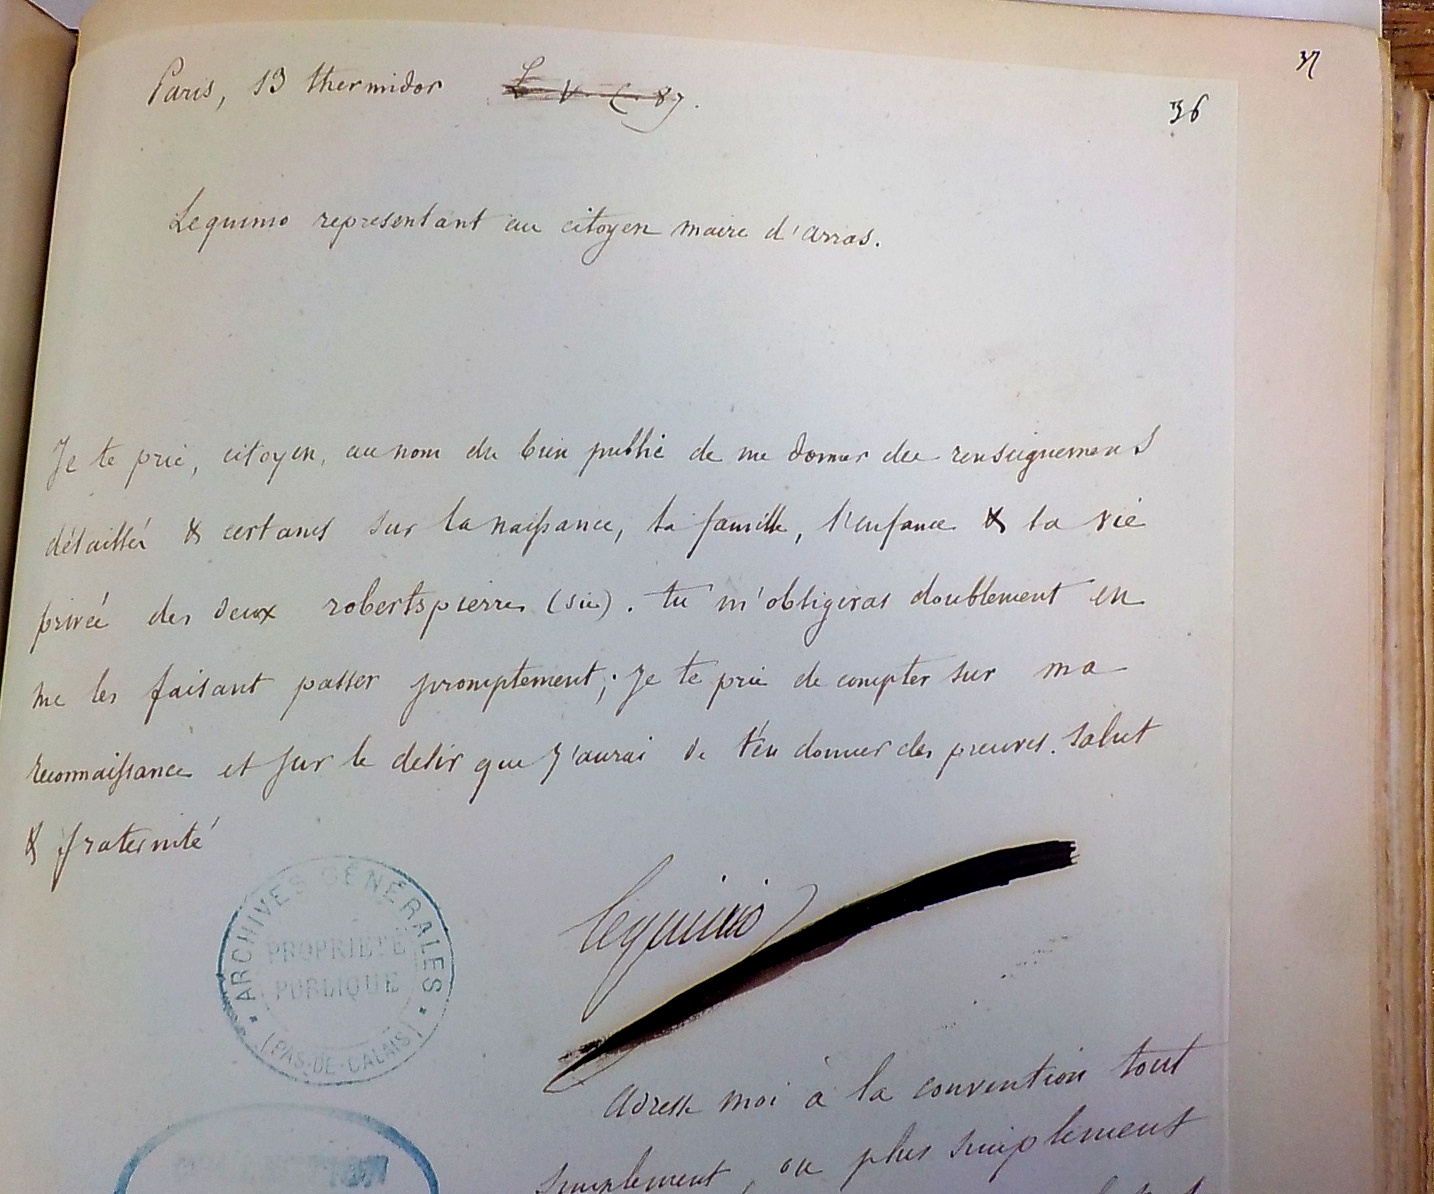 37
Paris, 13 thermidor L. V. C. 87.
36
Lequinio representant au citoyen maire d'arras.
Je te prie, citoyen, au nom du bien public de me donner des renseignemens
détaillés & certains sur la naissance, la famille, l'enfance & la vie
privée des deux robertspierre (sic). tu m'obligeras doublement en
me les faisant passer promptement; Je te prie de compter sur ma
reconnaissance et sur le desir que j'aurai de t'en donner des preuves. Salut
& fraternité
lequinio
ARCHIVES GÉNÉRALES
PROPRIÉTÉ
PUBLIQUE
(PAS-DE-CALAIS)
Adresse moi à la convention tout
simplement, ou plus simplement